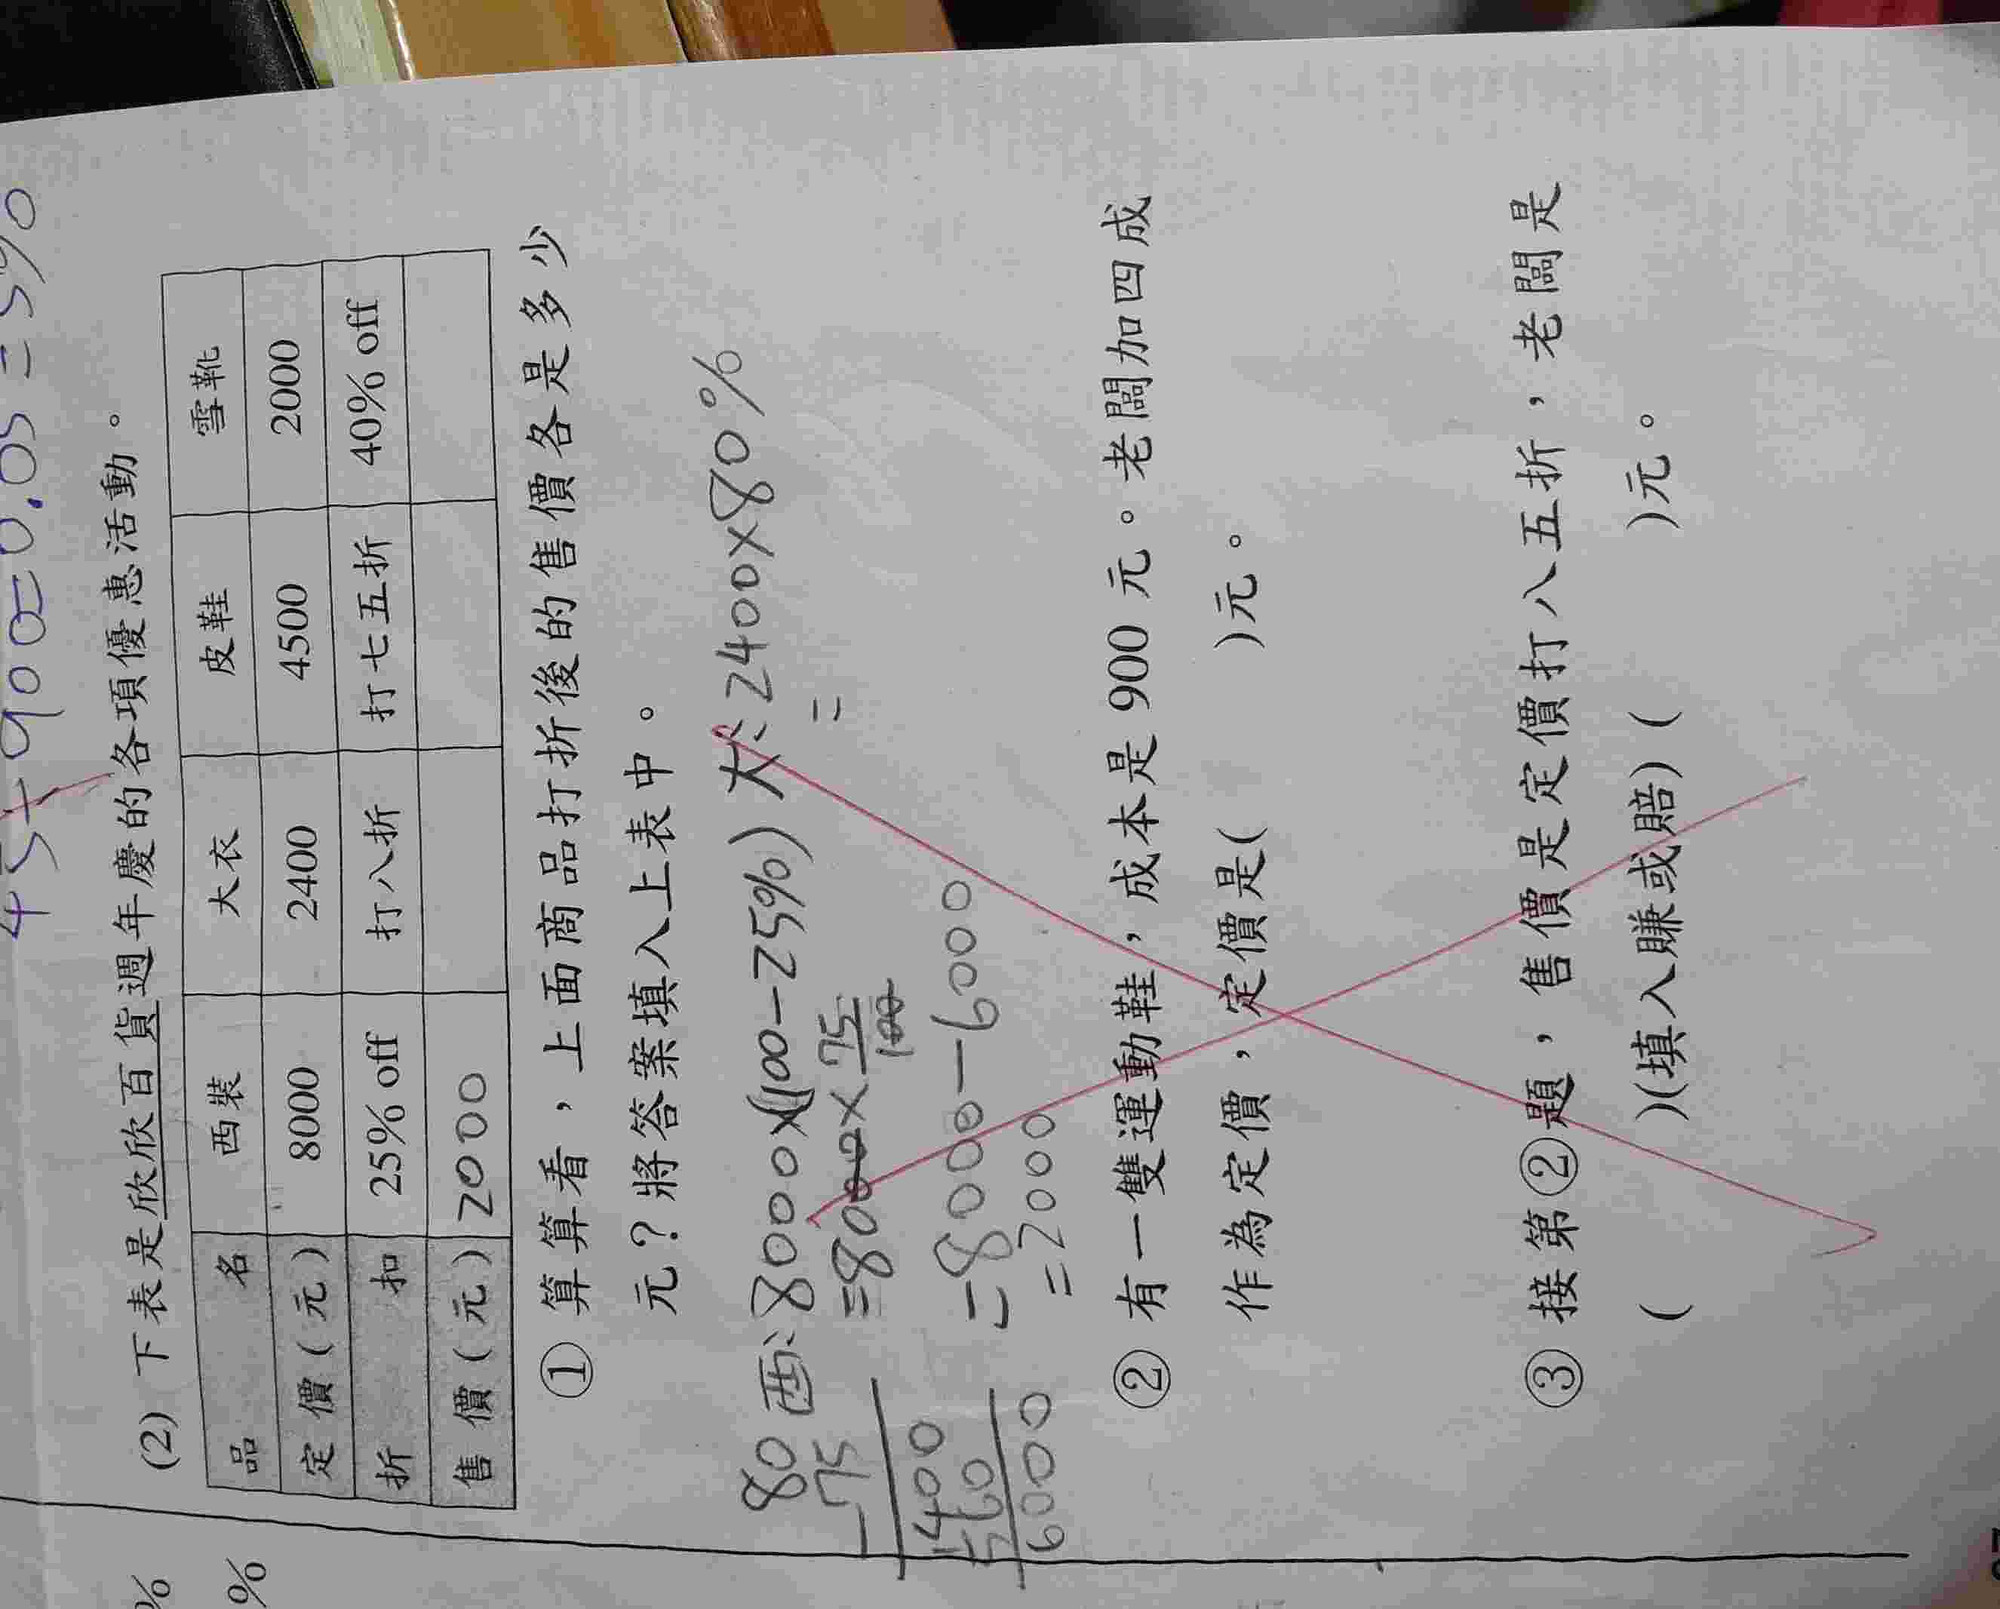 45÷900=0.05=5%
(2) 下表是欣欣百貨週年慶的各項優惠活動。
品名 西裝 大衣 皮鞋 雪靴
定價(元) 8000 2400 4500 2000
折扣 25% off 打八折 打七五折 40% off
售價(元) 2000
① 算算看，上面商品打折後的售價各是多少
元？將答案填入上表中。
西:8000×(100-25%) 大:2400×80%
=8000×75/100 =
=8000-6000
=2000
80
-75
400
560
6000
② 有一雙運動鞋，成本是 900 元。老闆加四成
作為定價，定價是( )元。
③ 接第②題，售價是定價打八五折，老闆是
( )(填入賺或賠) ( )元。
%
%